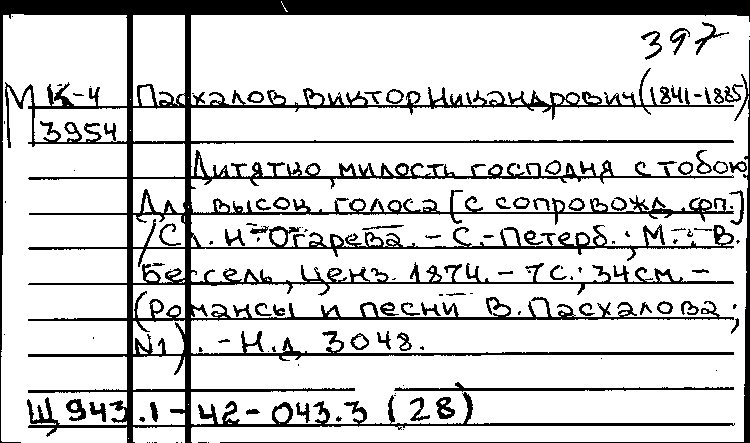 397
М К-4 Пасхалов, Виктор Никандрович (1841-1885)
3954
Дитятко, милость господня с тобою
Для высок. голоса [с сопровожд. фп.]
/Сл. Н. Огарева. - С.-Петерб.; М.: В.
Бессель, ценз. 1874. - 7 с.; 34 см. -
(Романсы и песни В. Пасхалова;
N1). - Н.д. 3048.
Щ 943.1-42-043.3 (28)